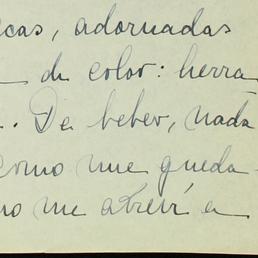 icas, adornadas
de color: herra
. De beber, nada
como me queda-
no me atreví a